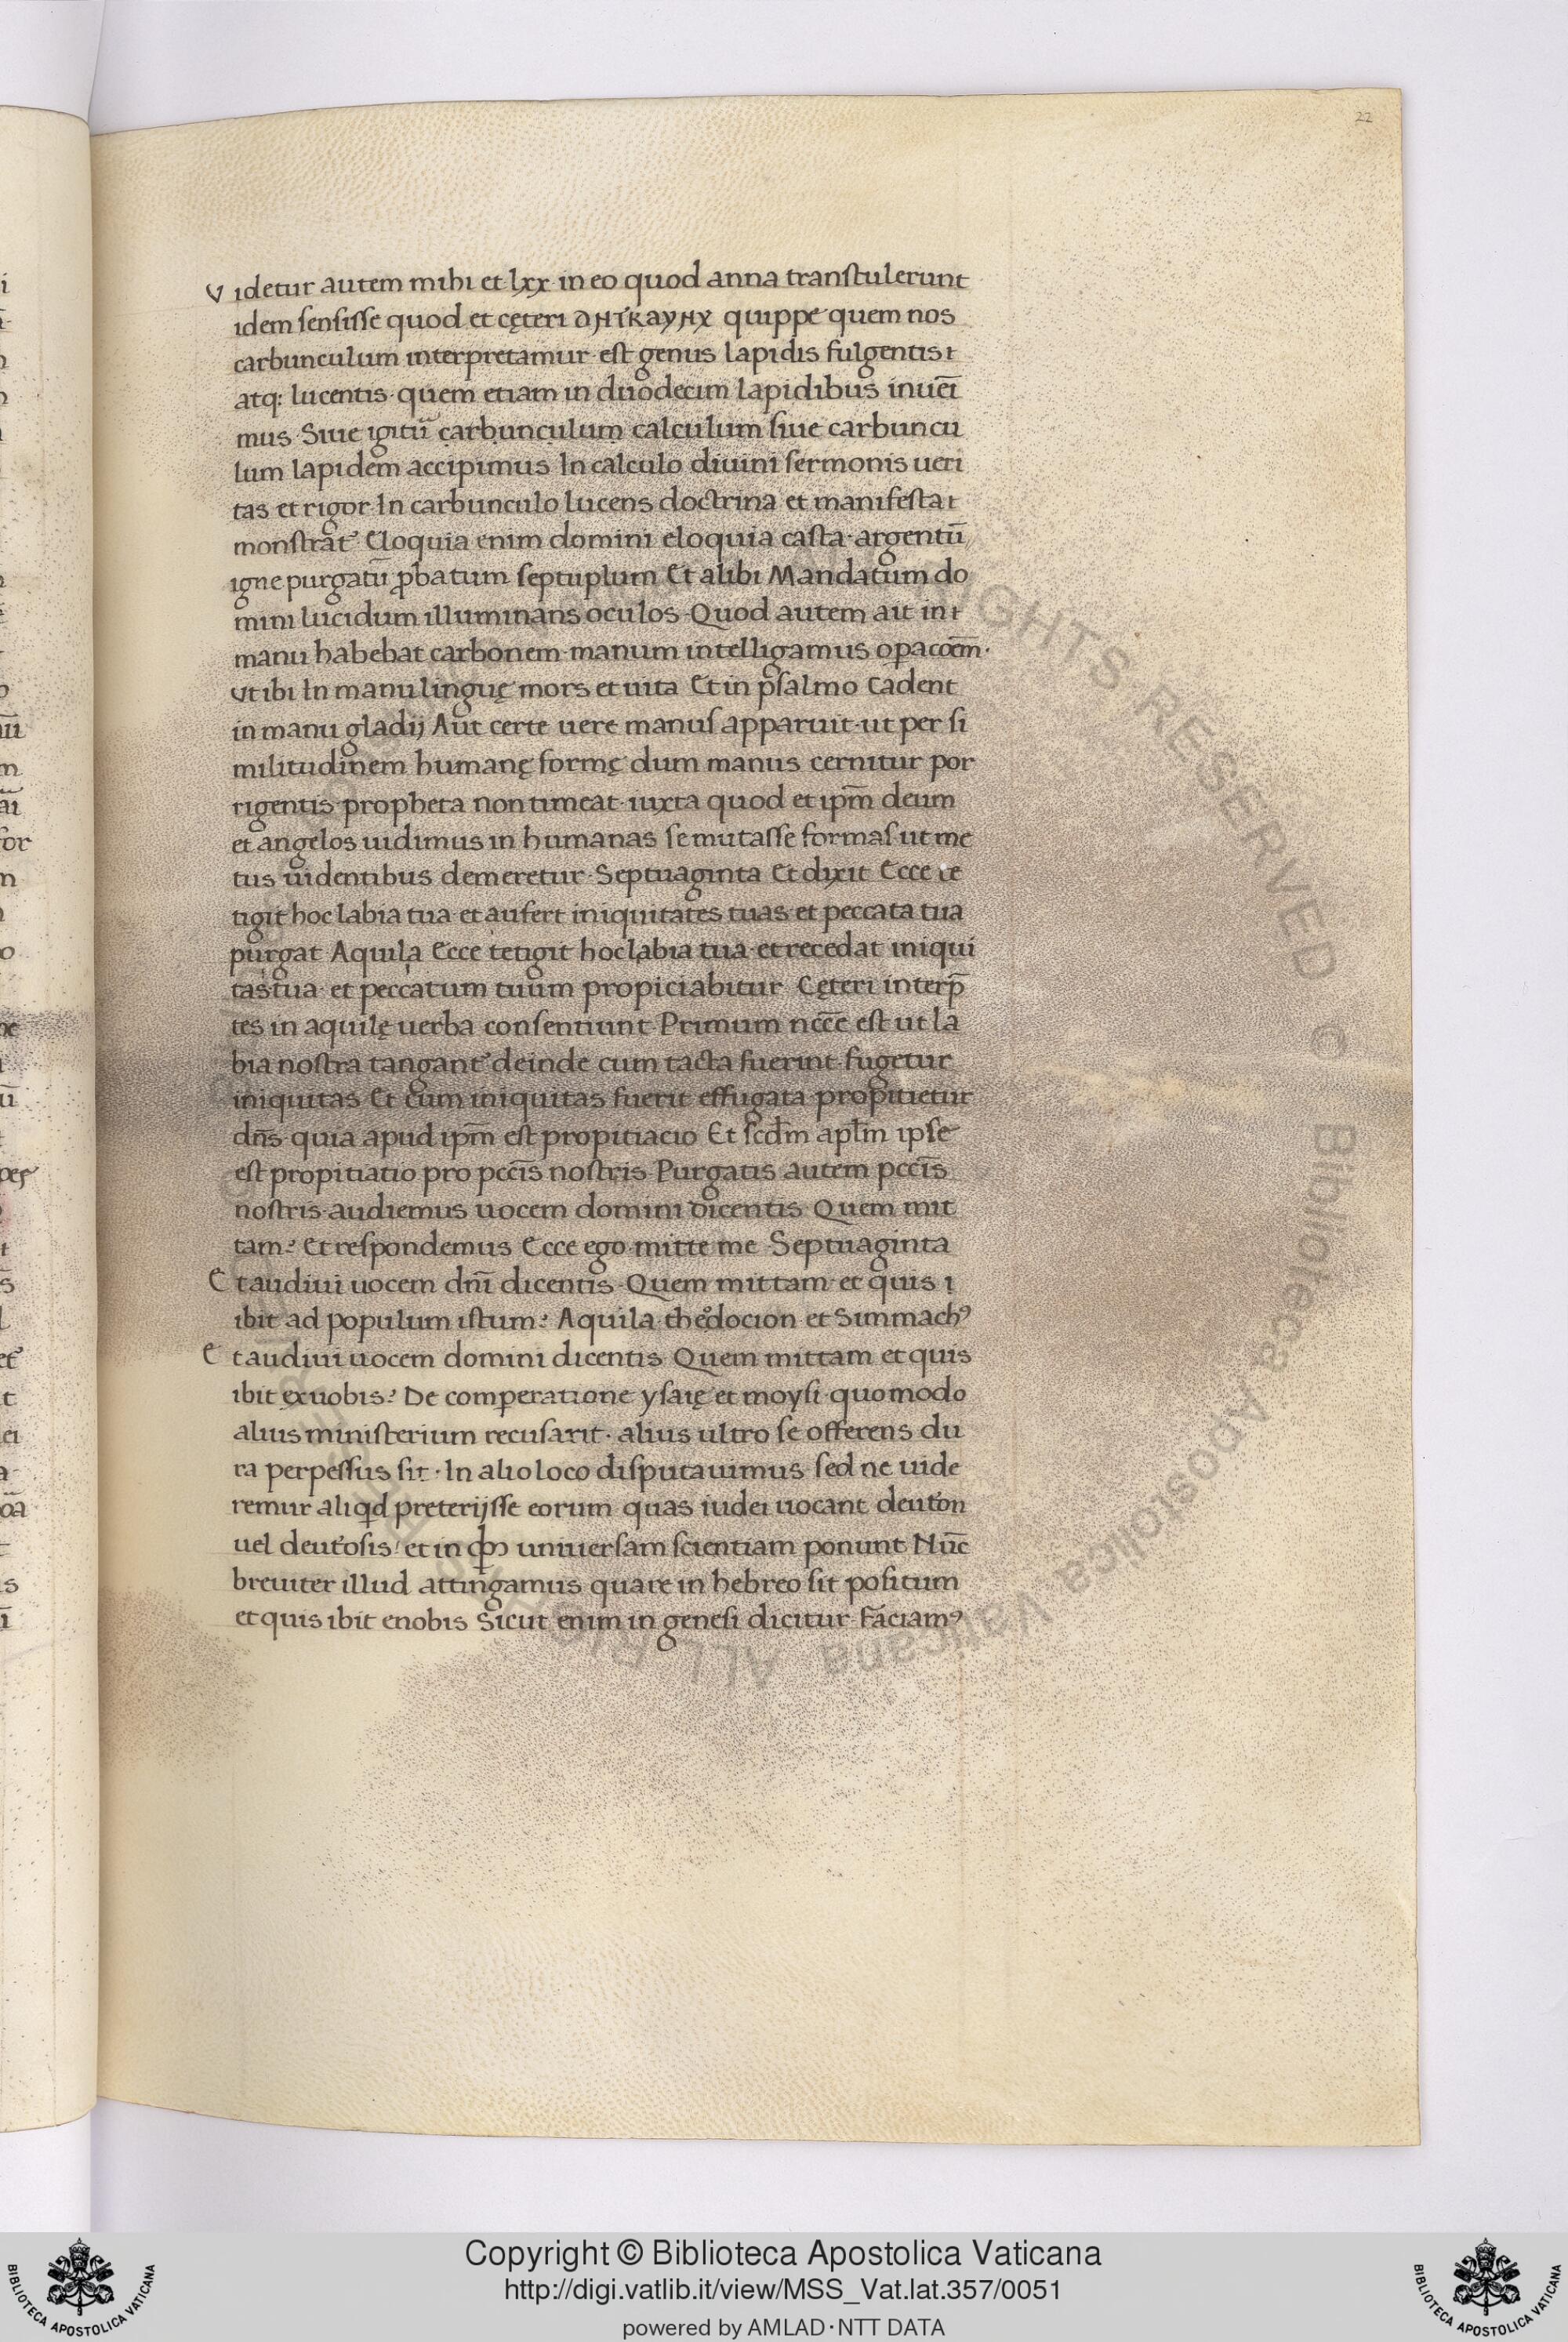 22
Videtur autem mihi et lxx in eo quod anna transtulerunt
idem sensisse quod et cęteri quippe quem nos
carbunculum interpretamur est genus lapidis fulgentis
atq: lucentis· quem etiam in duodecim lapidibus inueī
mus· Siue igitū carbunculum calculum siue carbuncu
lum lapidem accipimus In calculo diuini sermonis ueri
tas et rigor In carbunculo lucens doctrina et manifesta
monstrat᾽ Eloquia enim domini eloquia casta· argentū
igne purgatū ꝓbatum septuplum Et alibi Mandatum do
mini lucidum illuminans oculos· Quod autem ait in
manu habebat carbonem· manum intelligamus
ut ibi In manu linguę mors et uita Et in psalmo Cadent
in manu gladij Aut certe uere manus apparuit· ut per si
militudinem humanę formę dum manus cernitur por
rigentis propheta non timeat iuxta quod et ipm̄ deum
et angelos uidimus in humanas se mutasse formas· ut me
tus uidentibus demeretur· Septuaginta Et dixit Ecce te
tigit hoc labia tua et aufert iniquitates tuas et peccata tua
purgat Aquila Ecce tetigit hoc labia tua· et recedat iniqui
tas tua· et peccatum tuum propiciabitur Cęteri interp̄
tes in aquilę uerba consentiunt Primum nccē est ut la
bia nostra tangant᾽ deinde cum tacta fuerint· fugetur
iniquitas Et cum iniquitas fuerit effugata propitietur
dn̄s quia apud ipm̄ est propitiacio Et scdm̄ aplm̄ ipse
est propitiatio pro pccīs nostris· Purgatis autem pccīs
nostris audiemus uocem domini dicentis Quem mit
tam? Et respondemus Ecce ego mitte me Septuaginta
Et audiui uocem dnī dicentis· Quem mittam et quis i
ibit ad populum istum? Aquila theodocion et Simmachꝰ
Et audiui uocem domini dicentis Quem mittam et quis
ibit ex uobis? De comperatione ysaię et moysi quomodo
alius ministerium recusarit· alius ultro se offerens du
ra perpessus sit· In alio loco disputauimus sed ne uide
remur aliqd preterijsse eorum quas iudei uocant
uel et in universam scientiam ponunt Nūc
breuiter illud attingamus quare in hebreo sit positum
et quis ibit enobis Sicut enim in genesi dicitur Faciamꝰ
ALL RIGHTS RESERVED © Biblioteca Apostolica Vaticana
Copyright © Biblioteca Apostolica Vaticana
http://digi.vatlib.it/view/MSS_Vat.lat.357/0051
powered by AMLAD·NTT DATA
BIBLIOTECA APOSTOLICA VATICANA
BIBLIOTECA APOSTOLICA VATICANA